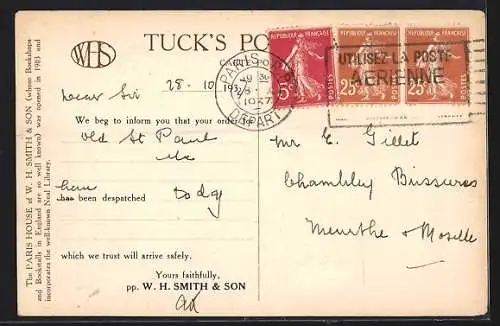 The PARIS HOUSE of W. H. SMITH & SON (whose Bookshops
and Bookstalls in England are so well known) was opened in 1903 and
incorporates the well-known Neal Library.
WHS
TUCK'S PO
CARTE
28. 10 193
Dear Sir
We beg to inform you that your order for
Old St Paul
have
has been despatched
today
which we trust will arrive safely.
Yours faithfully,
pp. W. H. SMITH & SON
REPUBLIQUE FRANÇAISE
5c
POSTES
REPUBLIQUE FRANÇAISE
25c
POSTES
REPUBLIQUE FRANÇAISE
25c
POSTES
PARIS
1937
DEPART
UTILISEZ LA POSTE
AERIENNE
Mr E. Gillet
Chambley Bussieres
Meurthe & Moselle